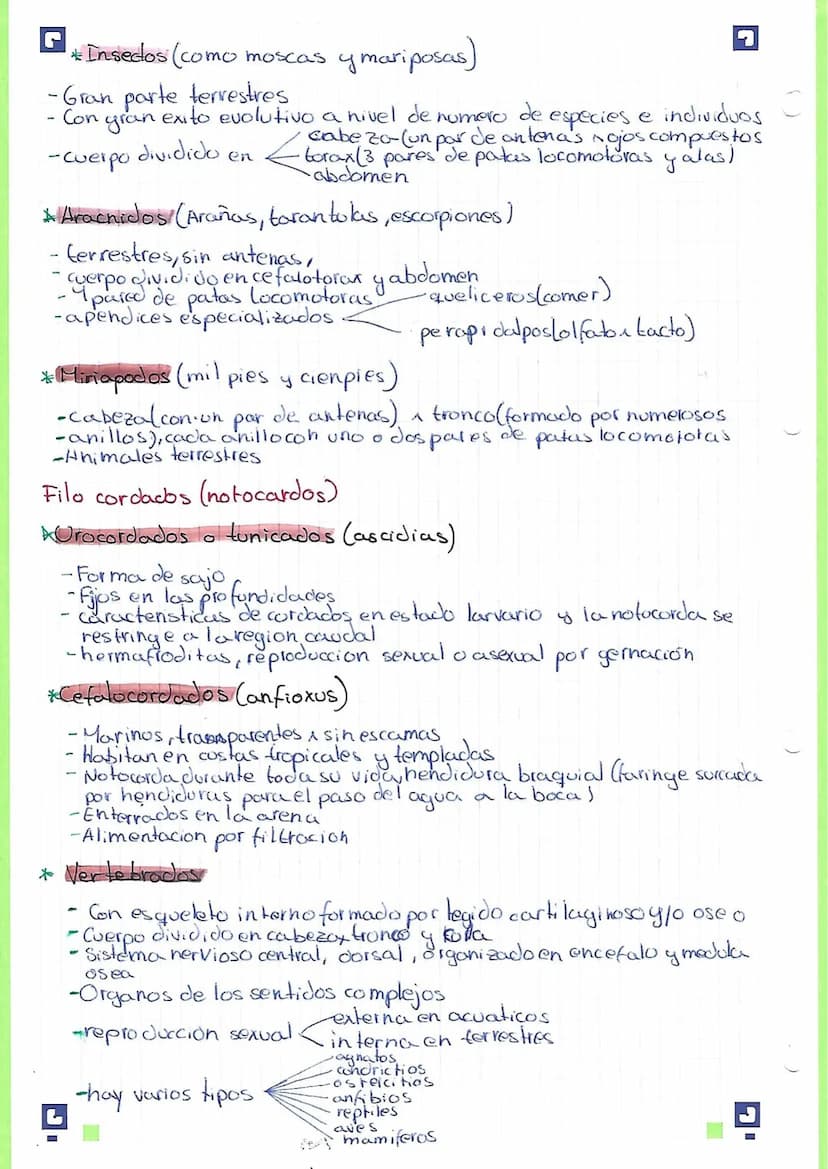 * Insectos (como moscas y mariposas)
- Gran parte terrestres
- Con gran exito evolutivo a nivel de numero de especies e individuos
- cuerpo dividido en
cabeza (un par de antenas y ojos compuestos
torax (3 pares de patas locomotoras y alas)
abdomen
* Aracnidos (Arañas, tarantulas, escorpiones)
- terrestres, sin antenas,
- cuerpo dividido en cefalotorax y abdomen
- 4 pares de patas locomotoras
- apendices especializados
queliceros (comer)
(olfato y tacto)
* Miriapodos (mil pies y cienpies)
- cabeza (con un par de antenas) y tronco (formado por numerosos
- anillos), cada anillo con uno o dos pares de patas locomotoras
- Animales terrestres
Filo cordados (notocardos)
* Urocordados o tunicados (ascidias)
- Forma de sajo
- Fijos en las profundidades
- caracteristicas de cordados en estado larvario y la notocorda se
restringe a la region caudal
- hermafroditas, reproduccion sexual o asexual por gernación
* Cefalocordados (anfioxus)
- Marinos, transparentes y sin escamas
- Habitan en costas tropicales y templadas
- Notocorda durante toda su vida, hendidura braquial (faringe surcada
por hendiduras para el paso del agua a la boca)
- Enterrados en la arena
- Alimentacion por filtracion
* Vertebrados
- Con esqueleto interno formado por tegido cartilaginoso y/o oseo
- Cuerpo dividido en cabeza, tronco y cola
- Sistema nervioso central, dorsal, organizado en encefalo y medula
osea
- Organos de los sentidos complejos
- reproducción sexual
externa en acuaticos
interna en terrestres
- hay varios tipos
agnatos
condrictios
osteictios
anfibios
reptiles
aves
mamiferos